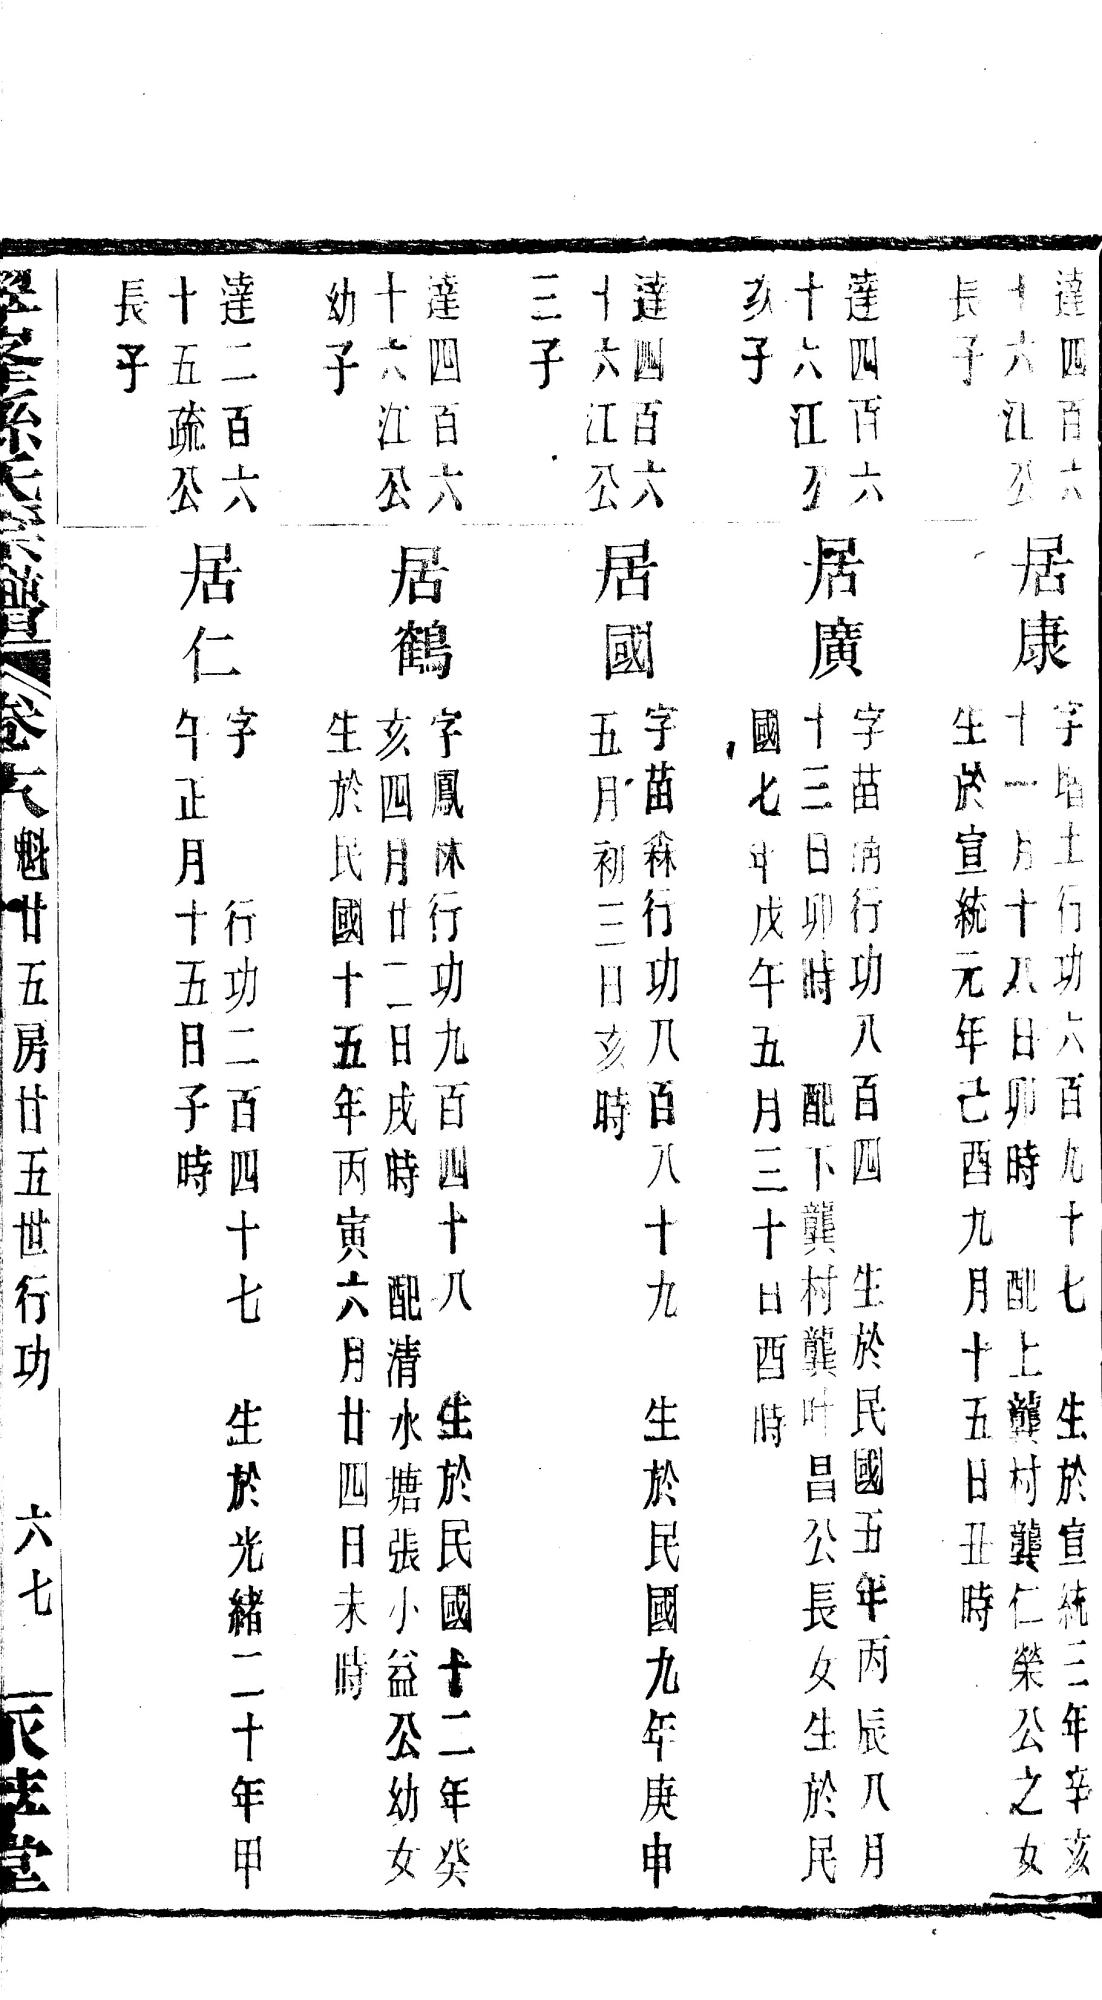 達四百六
十六江公
長子
居康
字培土行功六百九十七　生於宣統三年辛亥
十一月十八日卯時　配上龔村龔仁榮公之女
生於宣統元年己酉九月十五日丑時
達四百六
十六江公
次子
居廣
字苗清行功八百四　生於民國五年丙辰八月
十三日卯時　配下龔村龔叶昌公長女生於民
國七年戊午五月三十日酉時
達四百六
十六江公
三子
居國
字苗森行功八百八十九　生於民國九年庚申
五月初三日亥時
達四百六
十六江公
幼子
居鶴
字鳳沐行功九百四十八　生於民國十二年癸
亥四月廿二日戌時　配清水塘張小益公幼女
生於民國十五年丙寅六月廿四日未時
達二百六
十五疏公
長子
居仁
字　　行功二百四十七　生於光緒二十年甲
午正月十五日子時
孫氏宗譜　卷　魁廿五房廿五世行功　六七　堂